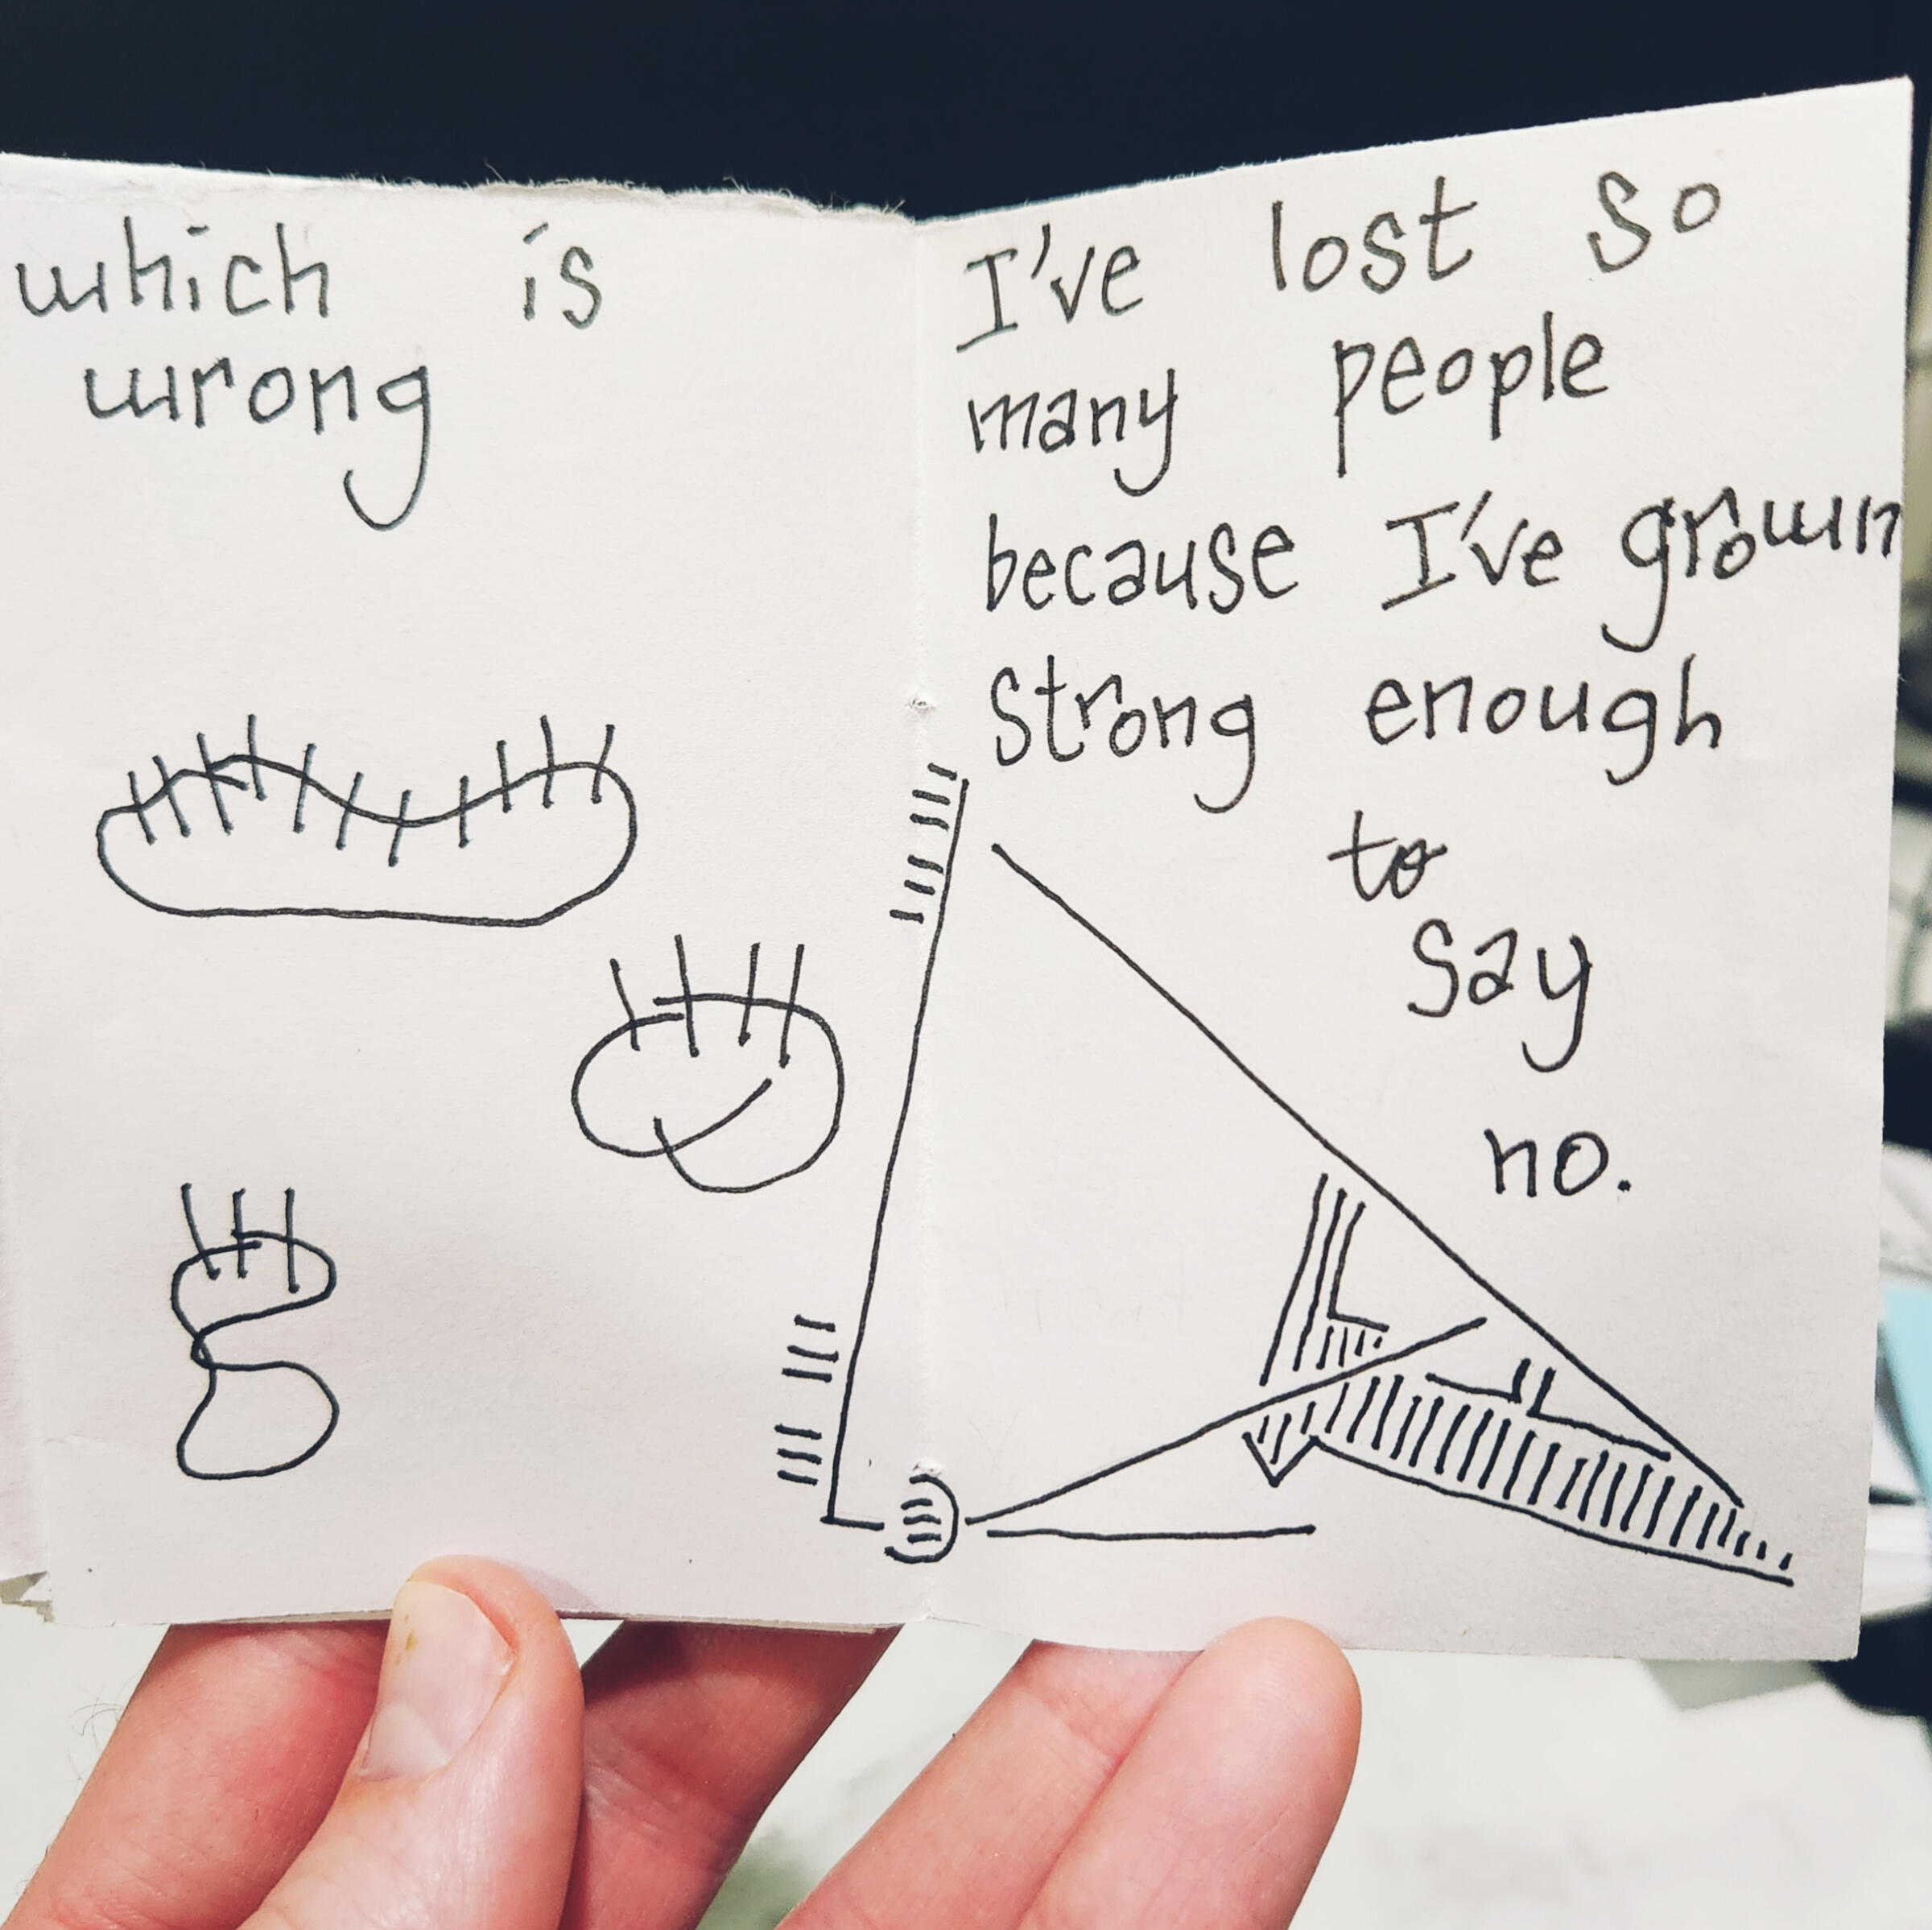 which is
wrong
I've lost so
many people
because I've grown
strong enough
to
say
no.